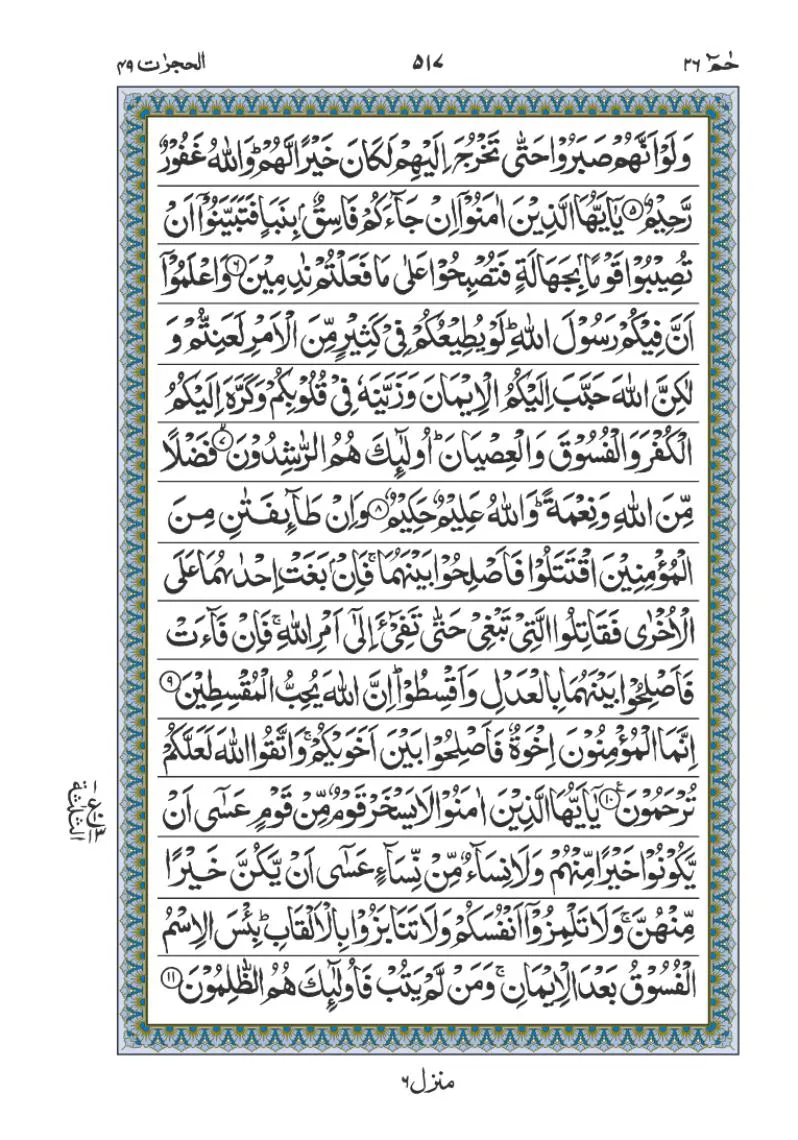 حٰمٓ ٢٦
٥١٧
الحجرٰت ٤٩
وَلَوْ اَنَّهُمْ صَبَرُوْا حَتّٰى تَخْرُجَ اِلَيْهِمْ لَكَانَ خَيْرًا لَّهُمْ ؕ وَاللّٰهُ غَفُوْرٌ
رَّحِيْمٌ ۝٥ يٰۤاَيُّهَا الَّذِيْنَ اٰمَنُوْۤا اِنْ جَآءَكُمْ فَاسِقٌۢ بِنَبَاٍ فَتَبَيَّنُوْۤا اَنْ
تُصِيْبُوْا قَوْمًۢا بِجَهَالَةٍ فَتُصْبِحُوْا عَلٰى مَا فَعَلْتُمْ نٰدِمِيْنَ ۝٦ وَاعْلَمُوْۤا
اَنَّ فِيْكُمْ رَسُوْلَ اللّٰهِ ؕ لَوْ يُطِيْعُكُمْ فِيْ كَثِيْرٍ مِّنَ الْاَمْرِ لَعَنِتُّمْ وَ
لٰكِنَّ اللّٰهَ حَبَّبَ اِلَيْكُمُ الْاِيْمَانَ وَزَيَّنَهٗ فِيْ قُلُوْبِكُمْ وَكَرَّهَ اِلَيْكُمُ
الْكُفْرَ وَالْفُسُوْقَ وَالْعِصْيَانَ ؕ اُولٰٓئِكَ هُمُ الرّٰشِدُوْنَ ۝٧ فَضْلًا
مِّنَ اللّٰهِ وَنِعْمَةً ؕ وَاللّٰهُ عَلِيْمٌ حَكِيْمٌ ۝٨ وَاِنْ طَآئِفَتٰنِ مِنَ
الْمُؤْمِنِيْنَ اقْتَتَلُوْا فَاَصْلِحُوْا بَيْنَهُمَا ۚ فَاِنْۢ بَغَتْ اِحْدٰىهُمَا عَلَى
الْاُخْرٰى فَقَاتِلُوا الَّتِيْ تَبْغِيْ حَتّٰى تَفِيْٓءَ اِلٰٓى اَمْرِ اللّٰهِ ۚ فَاِنْ فَآءَتْ
فَاَصْلِحُوْا بَيْنَهُمَا بِالْعَدْلِ وَاَقْسِطُوْا ؕ اِنَّ اللّٰهَ يُحِبُّ الْمُقْسِطِيْنَ ۝٩
اِنَّمَا الْمُؤْمِنُوْنَ اِخْوَةٌ فَاَصْلِحُوْا بَيْنَ اَخَوَيْكُمْ ۚ وَاتَّقُوا اللّٰهَ لَعَلَّكُمْ
تُرْحَمُوْنَ ۝١٠ يٰۤاَيُّهَا الَّذِيْنَ اٰمَنُوْا لَا يَسْخَرْ قَوْمٌ مِّنْ قَوْمٍ عَسٰٓى اَنْ
يَّكُوْنُوْا خَيْرًا مِّنْهُمْ وَلَا نِسَآءٌ مِّنْ نِّسَآءٍ عَسٰٓى اَنْ يَّكُنَّ خَيْرًا
مِّنْهُنَّ ۚ وَلَا تَلْمِزُوْۤا اَنْفُسَكُمْ وَلَا تَنَابَزُوْا بِالْاَلْقَابِ ؕ بِئْسَ الِاسْمُ
الْفُسُوْقُ بَعْدَ الْاِيْمَانِ ۚ وَمَنْ لَّمْ يَتُبْ فَاُولٰٓئِكَ هُمُ الظّٰلِمُوْنَ ۝١١
الثلٰثة
منزل ٦